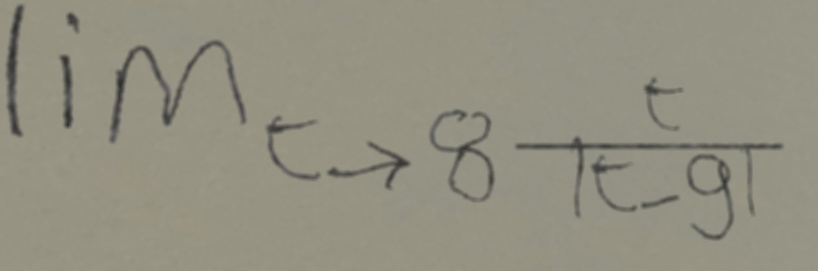 lim_{t→8} \frac{t}{|t-9|}